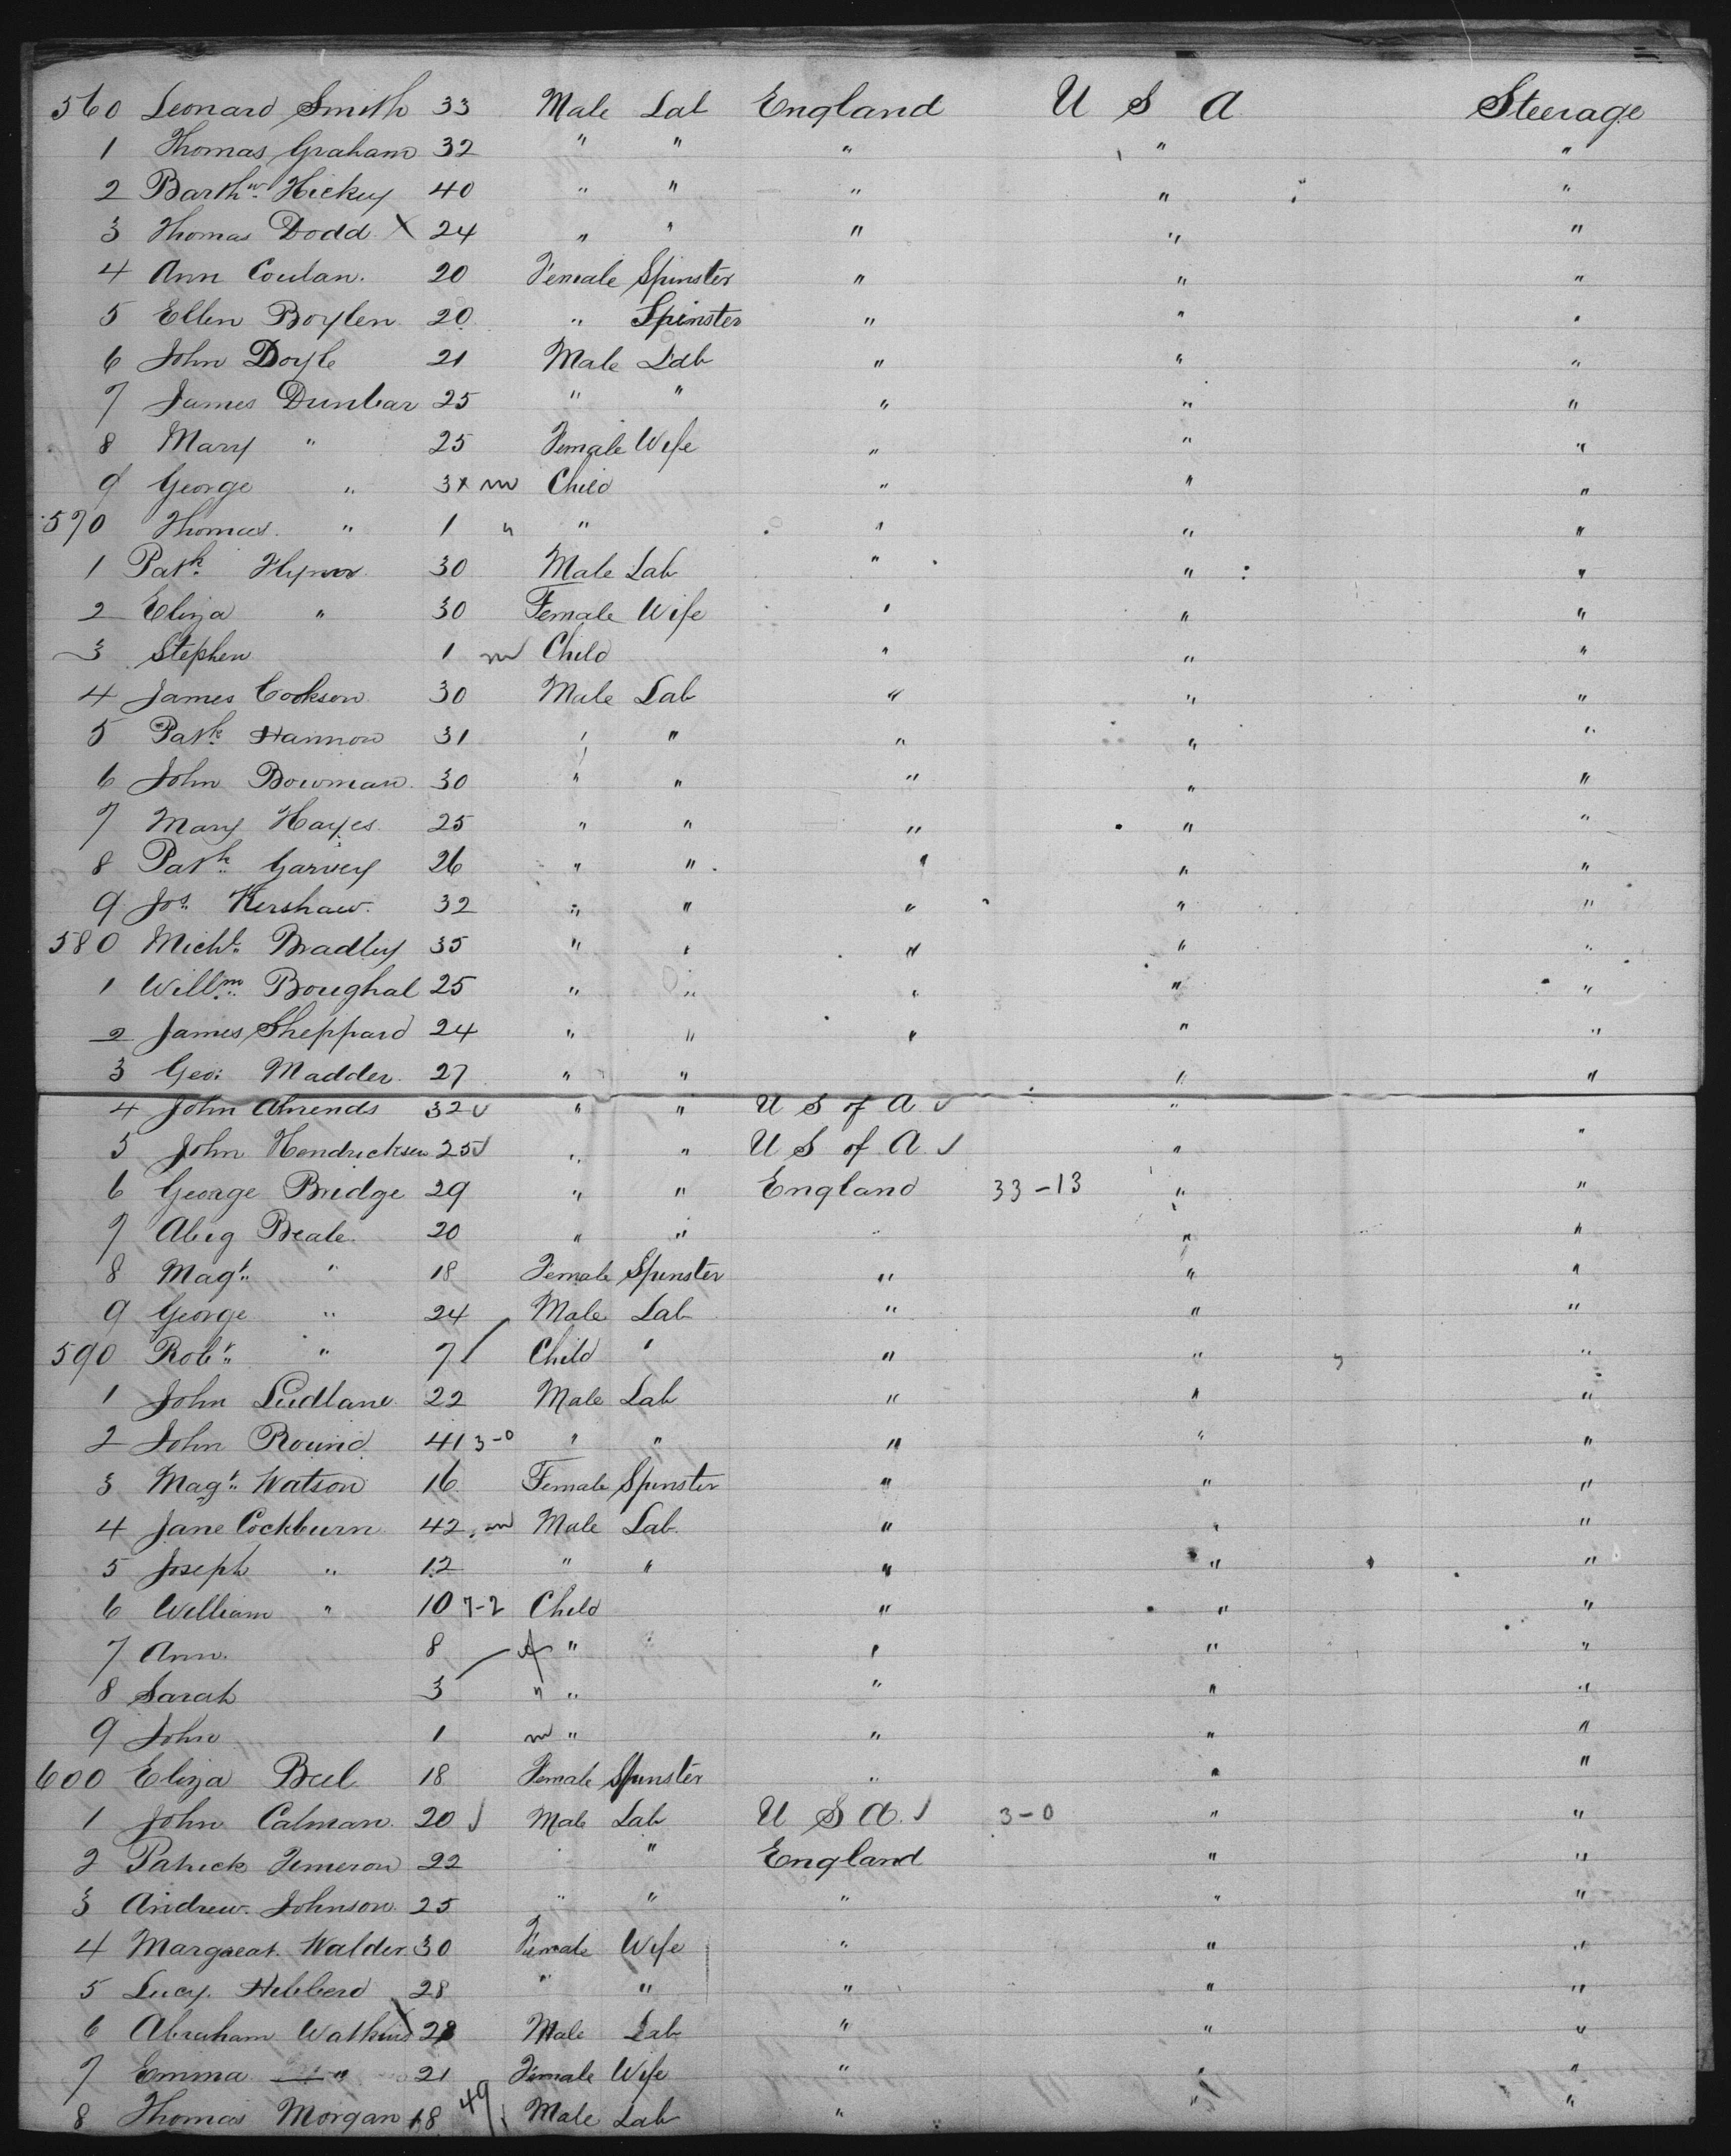 560 Leonard Smith 33 Male Lab England U S A Steerage
1 Thomas Graham 32 " " " " "
2 Barthw Hickey 40 " " " " "
3 Thomas Dodd X 24 " " " " "
4 Ann Coulan. 20 Female Spinster " " "
5 Ellen Boylen 20 " Spinster " " "
6 John Doyle 21 Male Lab " " "
7 James Dunbar 25 " " " " "
8 Mary " 25 Female Wife " " "
9 George " 3 x m Child " " "
570 Thomas " 1 " " " " "
1 Patk Flynn 30 Male Lab " " "
2 Eliza " 30 Female Wife " " "
3 Stephen 1 m Child " " "
4 James Cookson 30 Male Lab " " "
5 Patk Hannon 31 " " " " "
6 John Bowman 30 " " " " "
7 Mary Hayes 25 " " " " "
8 Patk Garvey 26 " " " " "
9 Jos Kershaw 32 " " " " "
580 Michl Bradley 35 " " " " "
1 Willm Boughal 25 " " " " "
2 James Sheppard 24 " " " " "
3 Geo: Madder 27 " " " "
4 John Ahrends 32 " " U S of A "
5 John Hendricksen 25 " " U S of A " "
6 George Bridge 29 " " England 33-13 " "
7 Beale 20 " " " " "
8 Magt " 18 Female Spinster " " "
9 George " 24 Male Lab " " "
590 Robt " 7 Child " " " "
1 John Ludlane 22 Male Lab " " "
2 John Round 41 3-0 " " " " "
3 Magt Watson 16 Female Spinster " " "
4 Jane Cockburn 42 m Male Lab " " "
5 Joseph " 12 " " " " "
6 William " 10 7-2 Child " " "
7 Ann 8 " " " "
8 Sarah 3 " " " " "
9 John 1 m " " " "
600 Eliza Beel 18 Female Spinster " " "
1 John Calman 20 Male Lab U S A. 3-0 " "
2 Patrick 22 " England " "
3 Andrew Johnson 25 " " " " "
4 Margaeat Walder 30 Female Wife " " "
5 Lucy Hebberd 28 " " " " "
6 Abraham Watkins 28 Male Lab " " "
7 Emma " 21 Female Wife " " "
8 Thomas Morgan 18 49 Male Lab " " "